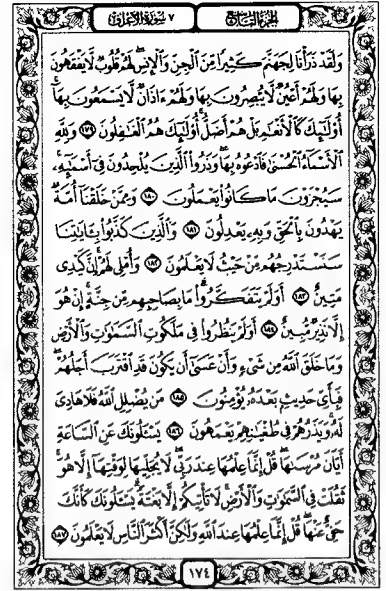 الجزء التاسع ٧ سورة الأعراف
وَلَقَدْ ذَرَأْنَا لِجَهَنَّمَ كَثِيرًا مِّنَ ٱلْجِنِّ وَٱلْإِنسِ لَهُمْ قُلُوبٌ لَّا يَفْقَهُونَ
بِهَا وَلَهُمْ أَعْيُنٌ لَّا يُبْصِرُونَ بِهَا وَلَهُمْ ءَاذَانٌ لَّا يَسْمَعُونَ بِهَآ
أُو۟لَٰٓئِكَ كَٱلْأَنْعَٰمِ بَلْ هُمْ أَضَلُّ أُو۟لَٰٓئِكَ هُمُ ٱلْغَٰفِلُونَ ١٧٩ وَلِلَّهِ
ٱلْأَسْمَآءُ ٱلْحُسْنَىٰ فَٱدْعُوهُ بِهَا وَذَرُوا۟ ٱلَّذِينَ يُلْحِدُونَ فِىٓ أَسْمَٰٓئِهِۦ
سَيُجْزَوْنَ مَا كَانُوا۟ يَعْمَلُونَ ١٨٠ وَمِمَّنْ خَلَقْنَآ أُمَّةٌ
يَهْدُونَ بِٱلْحَقِّ وَبِهِۦ يَعْدِلُونَ ١٨١ وَٱلَّذِينَ كَذَّبُوا۟ بِـَٔايَٰتِنَا
سَنَسْتَدْرِجُهُم مِّنْ حَيْثُ لَا يَعْلَمُونَ ١٨٢ وَأُمْلِى لَهُمْ إِنَّ كَيْدِى
مَتِينٌ ١٨٣ أَوَلَمْ يَتَفَكَّرُوا۟ مَا بِصَاحِبِهِم مِّن جِنَّةٍ إِنْ هُوَ
إِلَّا نَذِيرٌ مُّبِينٌ ١٨٤ أَوَلَمْ يَنظُرُوا۟ فِى مَلَكُوتِ ٱلسَّمَٰوَٰتِ وَٱلْأَرْضِ
وَمَا خَلَقَ ٱللَّهُ مِن شَىْءٍ وَأَنْ عَسَىٰٓ أَن يَكُونَ قَدِ ٱقْتَرَبَ أَجَلُهُمْ
فَبِأَىِّ حَدِيثٍۭ بَعْدَهُۥ يُؤْمِنُونَ ١٨٥ مَن يُضْلِلِ ٱللَّهُ فَلَا هَادِىَ
لَهُۥ وَيَذَرُهُمْ فِى طُغْيَٰنِهِمْ يَعْمَهُونَ ١٨٦ يَسْـَٔلُونَكَ عَنِ ٱلسَّاعَةِ
أَيَّانَ مُرْسَىٰهَا قُلْ إِنَّمَا عِلْمُهَا عِندَ رَبِّى لَا يُجَلِّيهَا لِوَقْتِهَآ إِلَّا هُوَ
ثَقُلَتْ فِى ٱلسَّمَٰوَٰتِ وَٱلْأَرْضِ لَا تَأْتِيكُمْ إِلَّا بَغْتَةً يَسْـَٔلُونَكَ كَأَنَّكَ
حَفِىٌّ عَنْهَا قُلْ إِنَّمَا عِلْمُهَا عِندَ ٱللَّهِ وَلَٰكِنَّ أَكْثَرَ ٱلنَّاسِ لَا يَعْلَمُونَ ١٨٧
١٧٤